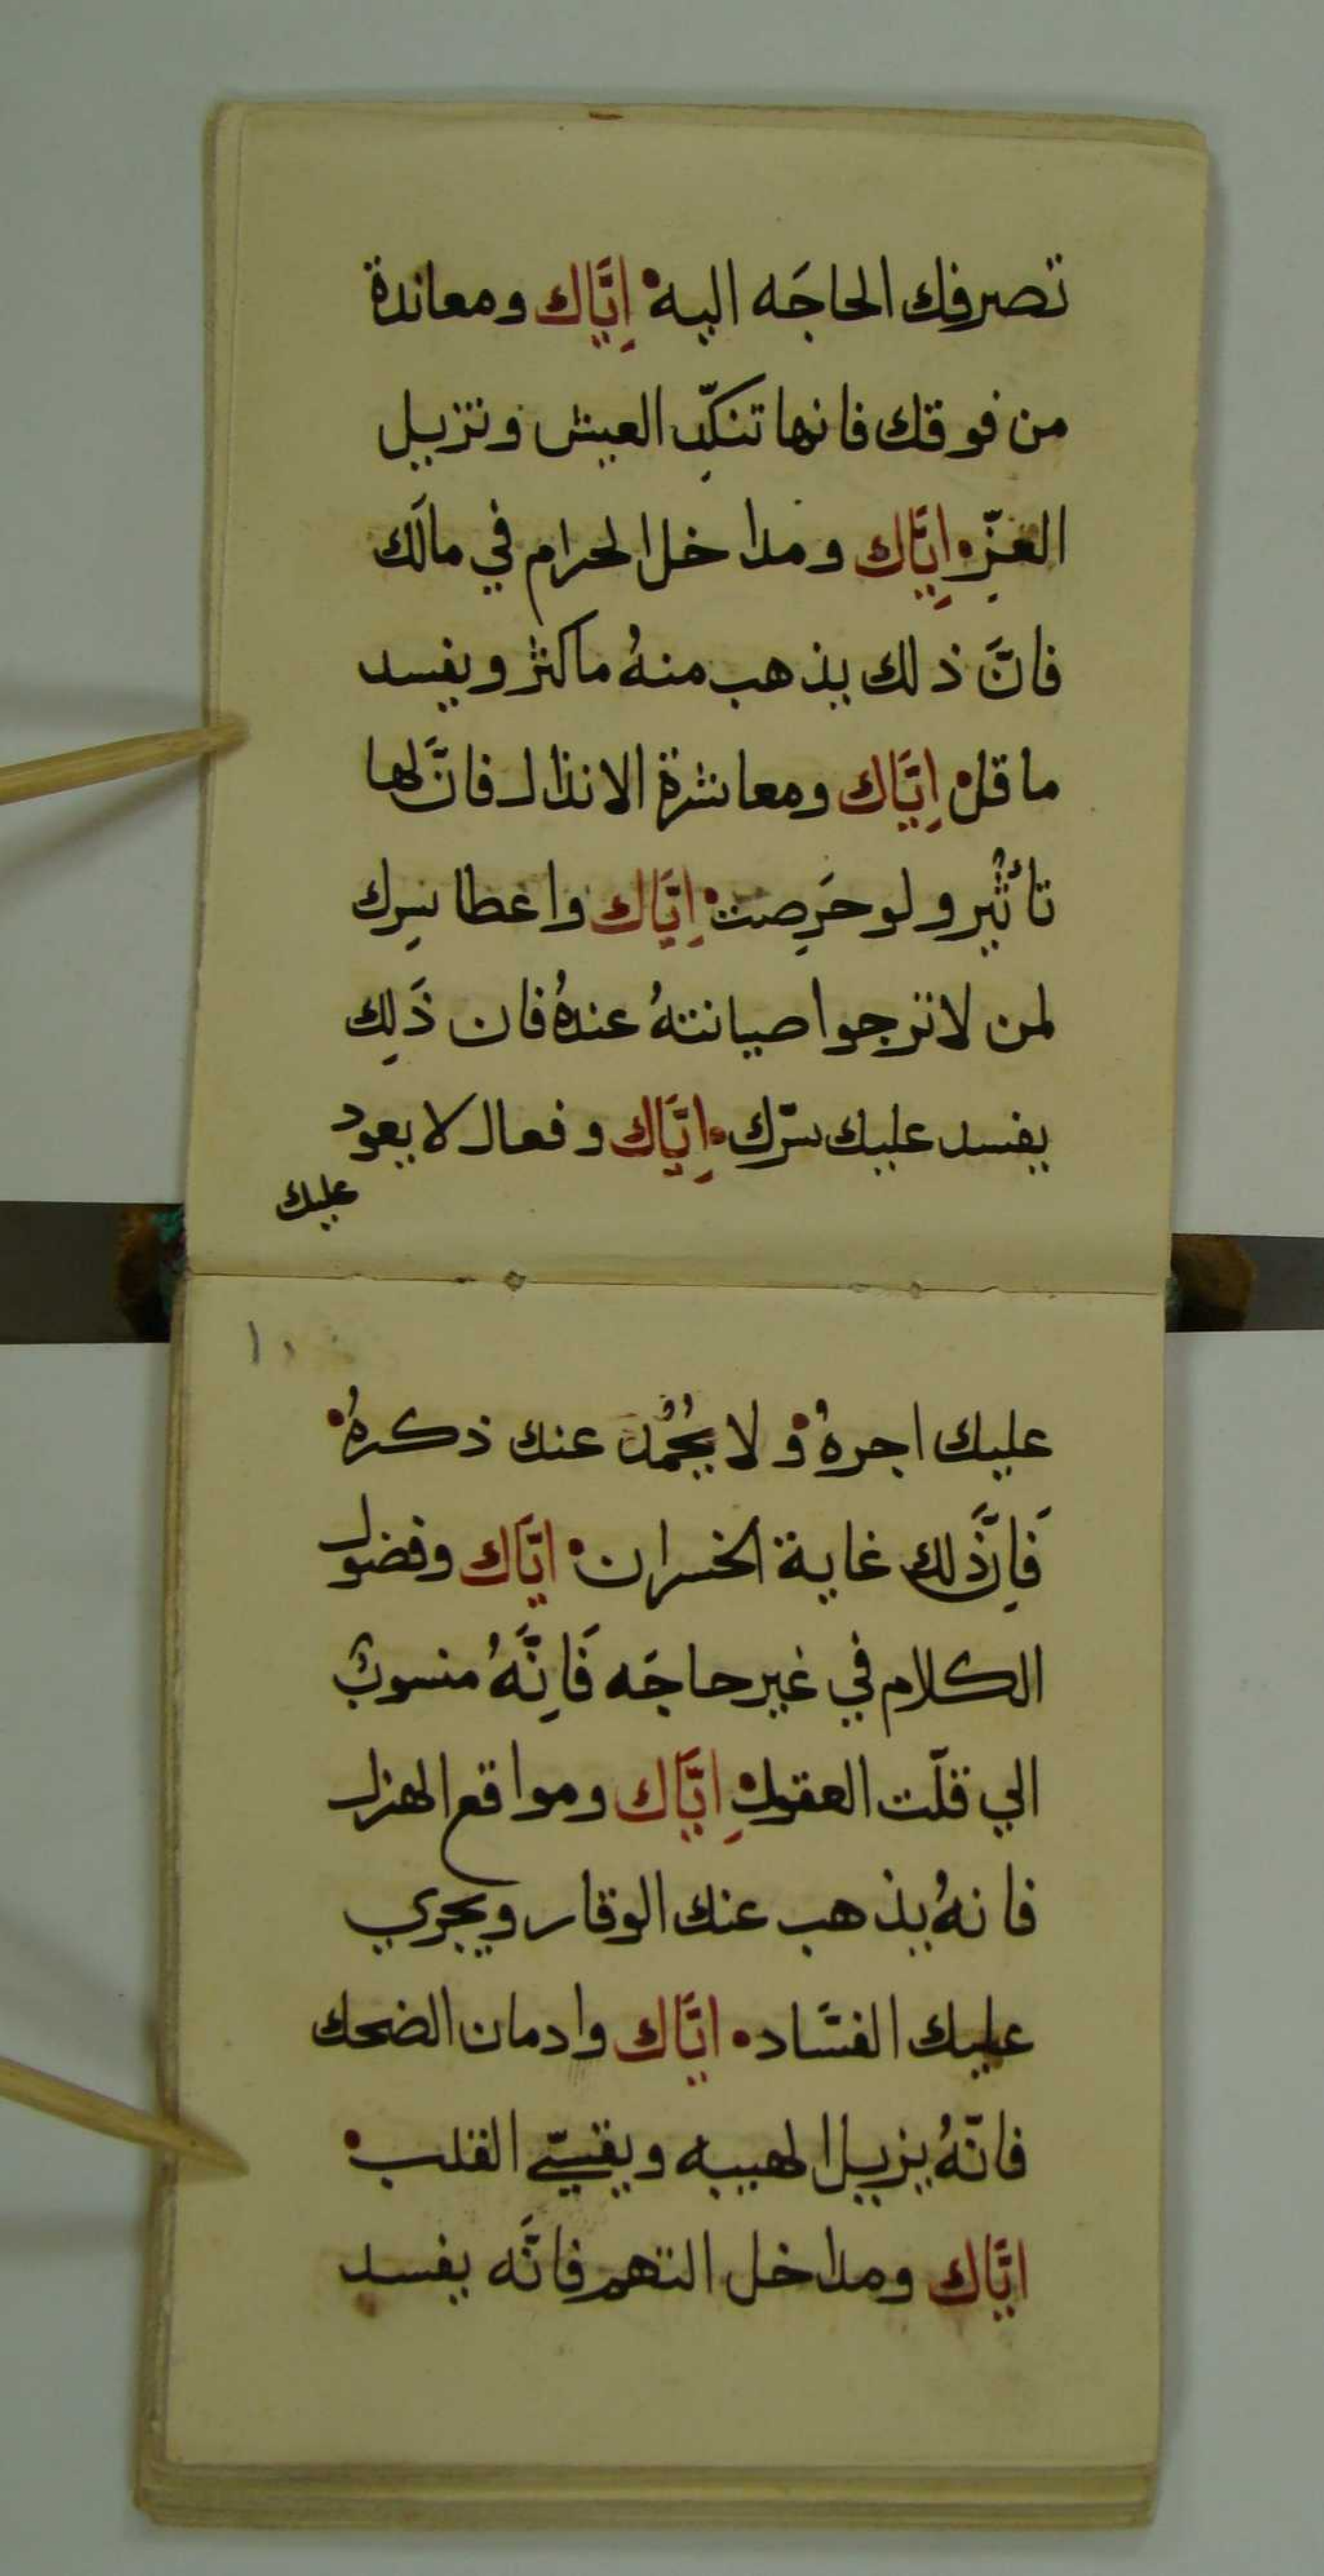 تصرفك الحاجَه اليه• اِيَّاك ومعاندة
من فوقك فانها تنكّدِ العيش وتزيل
العِزّ• اِيَّاك ومداخل الحرام في مالَك
فانَّ ذلك يذهب منهُ ماكثر ويفسد
ما قل• اِيَّاك ومعاشرة الانذال فانَّ لها
تأثيرٌ ولو حَرِصت• اِيَّاك واعطا سِرك
لمن لاترجوا صيانتهُ عندهُ فان ذَلِك
يفسد عليك سرّك• اِيَّاك وفعال لا يعود
عليك
١٠
عليك اجرهُ• ولا يُحْمُد عنك ذكرهُ•
فَاِنَّ ذلك غاية الخسران• ايَّاك وفضول
الكلام في غير حاجَه فَاِنَّهُ منسوبٌ
الي قلّت العقول• اِيَّاك ومواقع الهزل
فانهُ يذهب عنك الوقار ويجري
عليك الفسَاد• ايَّاك وادمان الضحك
فانّهُ يزيل الهيبه ويقسّي القلب•
ايَّاك ومداخل التهم فانَّه يفسد